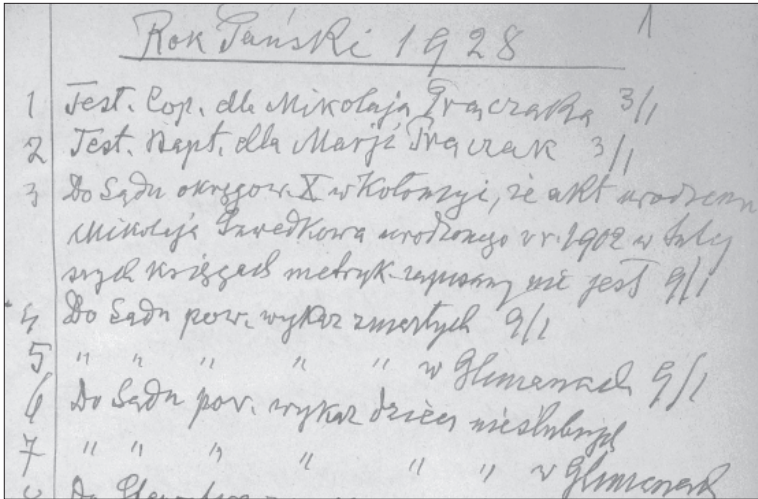 Rok Pański 1928
1
1 Test. Cop. dla Mikołaja 3/1
2 Test. Bapt. dla Marji 3/1
3 Do Sądu okręgow. X w Kołomyi, że akt urodzenia
Mikołaja urodzonego w r. 1902 w
szych księgach metryk zapisany nie jest 9/1
4 Do Sądu pow. wykaz zmarłych 9/1
5 " " " " " w 9/1
6 Do Sądu pow. wykaz dzieci nieślubnych
7 " " " " " " w